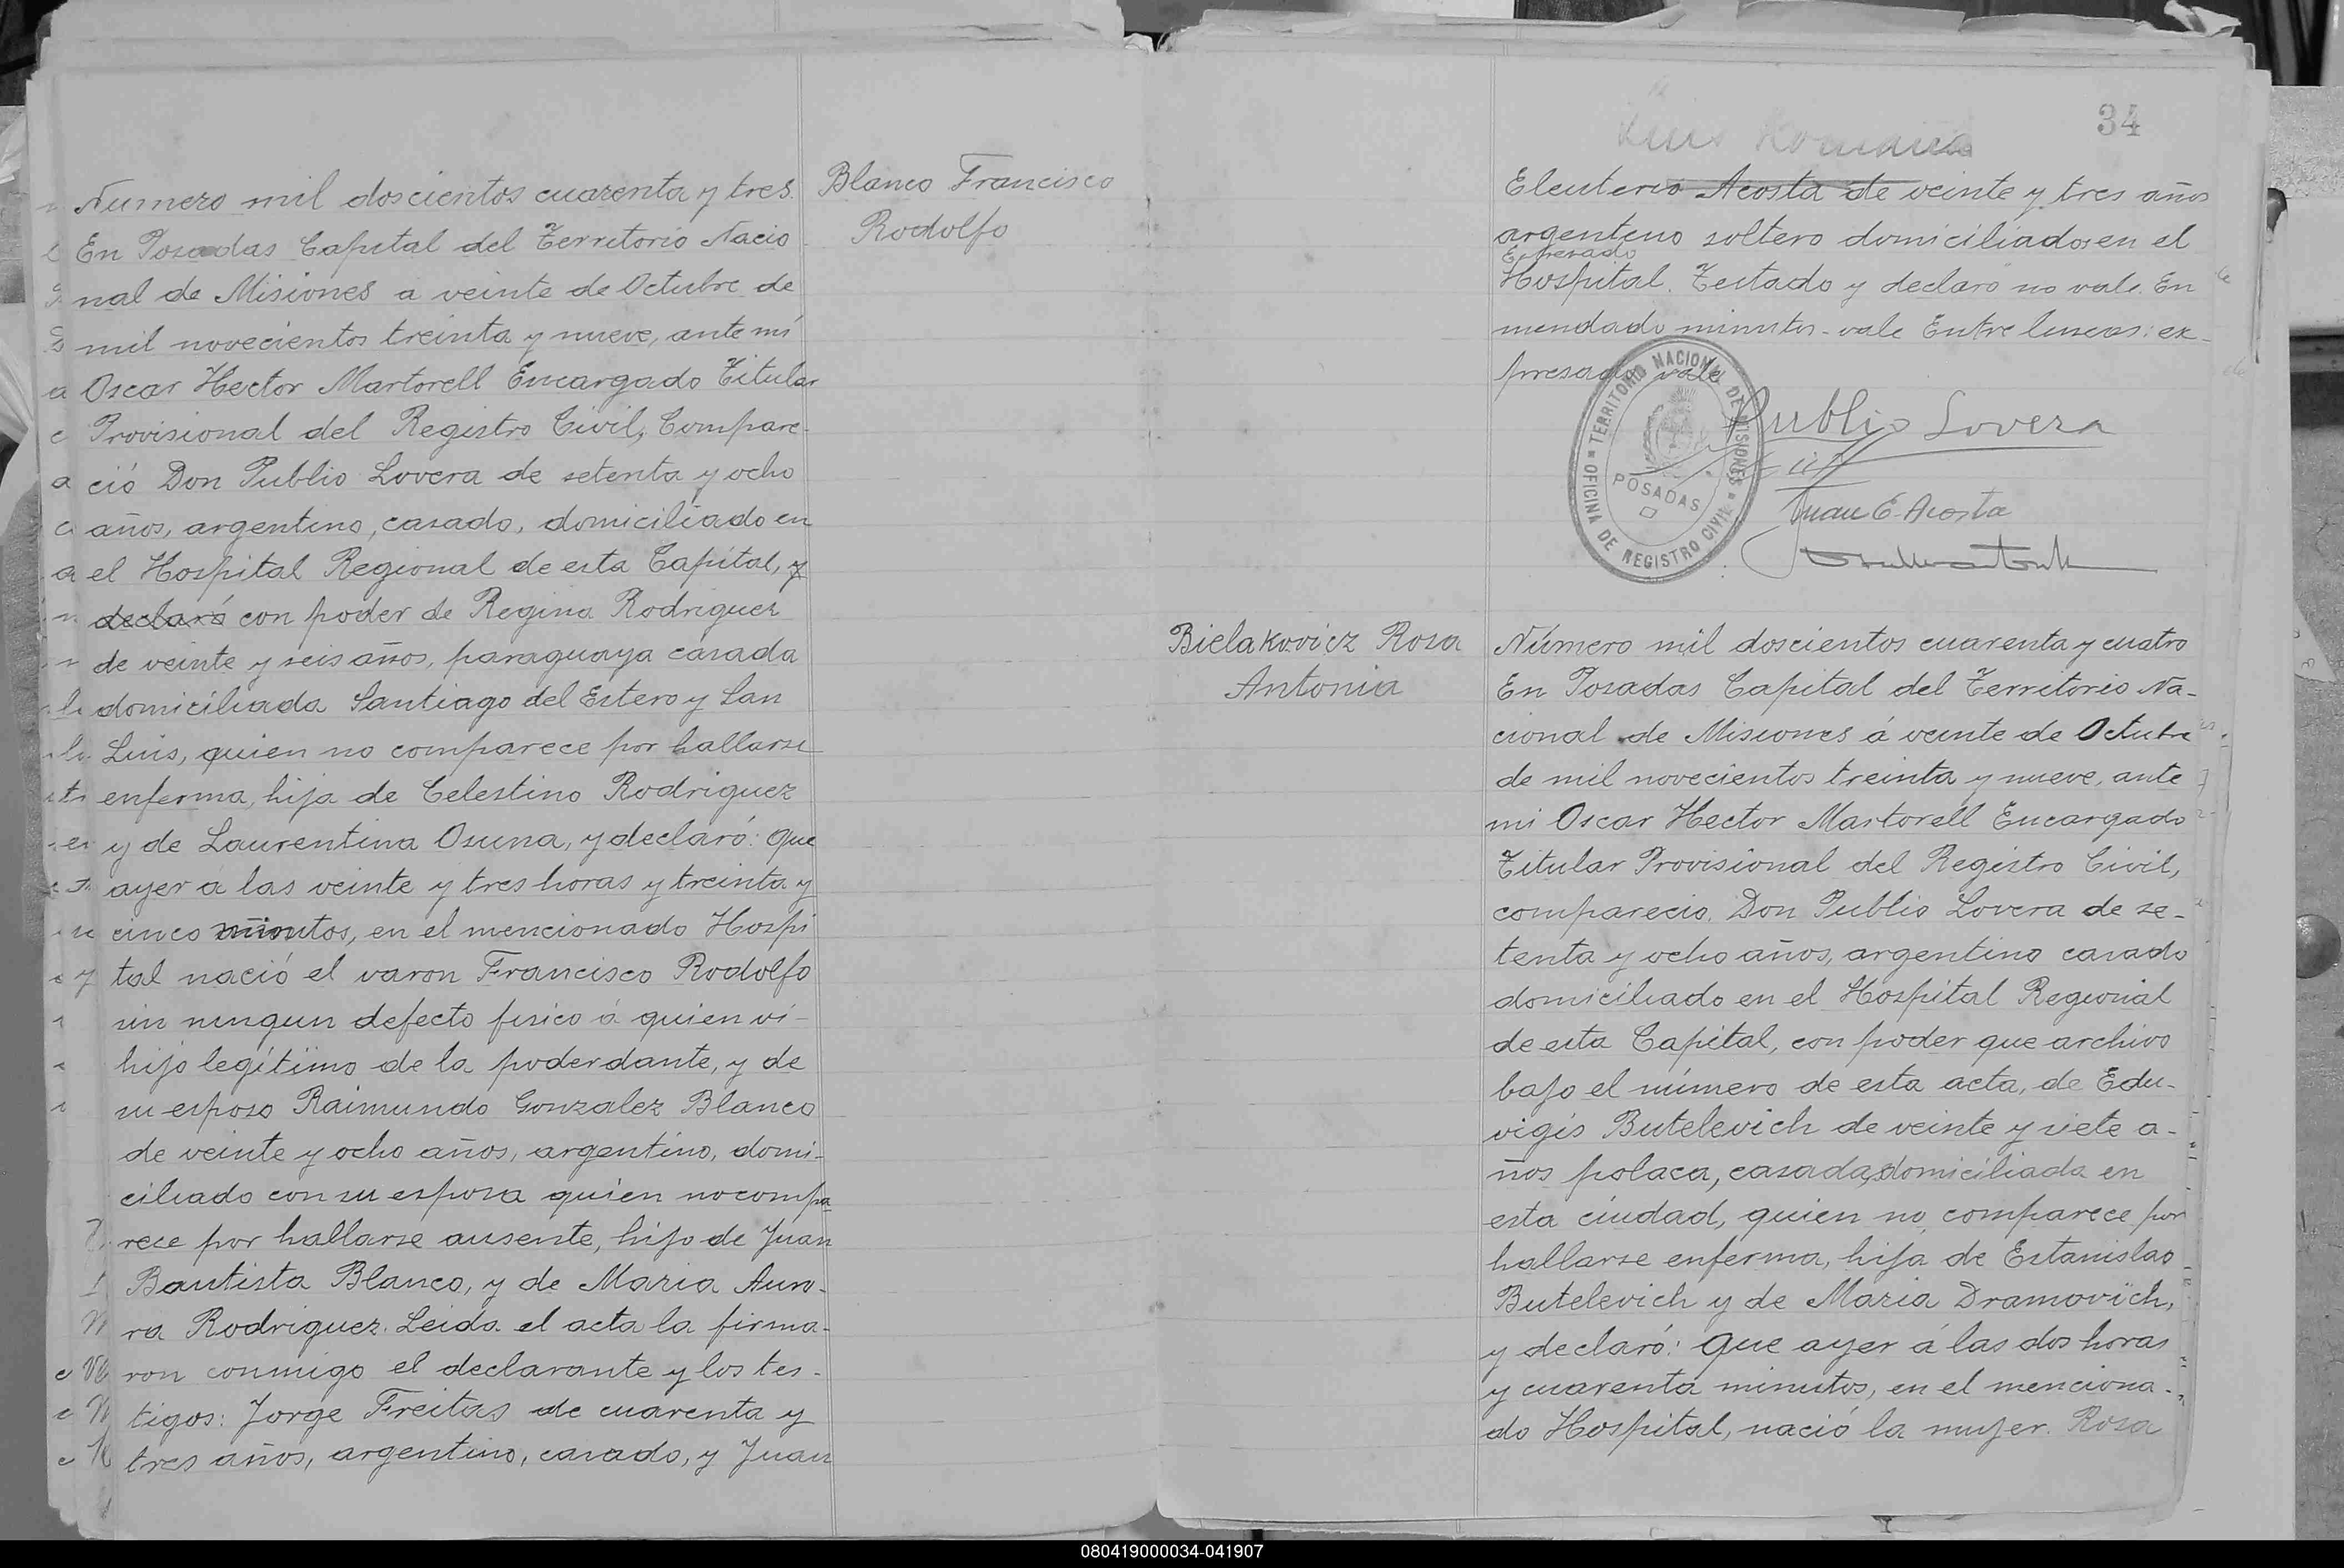 Blanco Francisco
Rodolfo
Numero mil doscientos cuarenta y tres.
En Posadas Capital del Territorio Nacio
nal de Misiones a veinte de Octubre de
mil novecientos treinta y nueve, ante mí
Oscar Hector Martorell Encargado Titular
Provisional del Registro Civil, Compare-
ció Don Publio Lovera de setenta y ocho
años, argentino, casado, domiciliado en
el Hospital Regional de esta Capital, y
declaró con poder de Regina Rodriguez
de veinte y seis años, paraguaya casada
domiciliada Santiago del Estero y San
Luis, quien no comparece por hallarse
enferma, hija de Celestino Rodriguez
y de Laurentina Osuna, y declaró: Que
ayer á las veinte y tres horas y treinta y
cinco minutos, en el mencionado Hospi
tal nació el varon Francisco Rodolfo
sin ningun defecto fisico á quien vi-
hijo legítimo de la poderdante, y de
su esposo Raimundo Gonzalez Blanco
de veinte y ocho años, argentino, domi-
ciliado con su esposa quien no compa
rece por hallarse ausente, hijo de Juan
Bautista Blanco, y de Maria Auro-
ra Rodriguez. Leida el acta la firma-
ron conmigo el declarante y los tes-
tigos: Jorge Freitas de cuarenta y
tres años, argentino, casado, y Juan
34
Eleuterio Acosta de veinte y tres años
argentino soltero domiciliados en el
Expresado
Hospital. Testado y declaro no vale. En
mendado minutos - vale Entre lineas: ex-
presado vale
OFICINA DE REGISTRO CIVIL
TERRITORIO NACIONAL DE MISIONES
POSADAS
Publio Lovera
Juan E. Acosta
Bielakovicz Rosa
Antonia
Número mil doscientos cuarenta y cuatro
En Posadas Capital del Territorio Na-
cional de Misiones á veinte de Octubre
de mil novecientos treinta y nueve, ante
mi Oscar Hector Martorell Encargado
Titular Provisional del Registro Civil,
comparecio, Don Publio Lovera de se-
tenta y ocho años, argentino casado
domiciliado en el Hospital Regional
de esta Capital, con poder que archivo
bajo el número de esta acta, de Edu-
vigis Butelevich de veinte y siete a-
ños polaca, casada, domiciliada en
esta ciudad, quien no comparece por
hallarse enferma, hija de Estanislao
Butelevich y de Maria Dramovich,
y declaró: Que ayer á las dos horas
y cuarenta minutos, en el menciona-
do Hospital, nació la mujer. Rosa
080419000034-041907